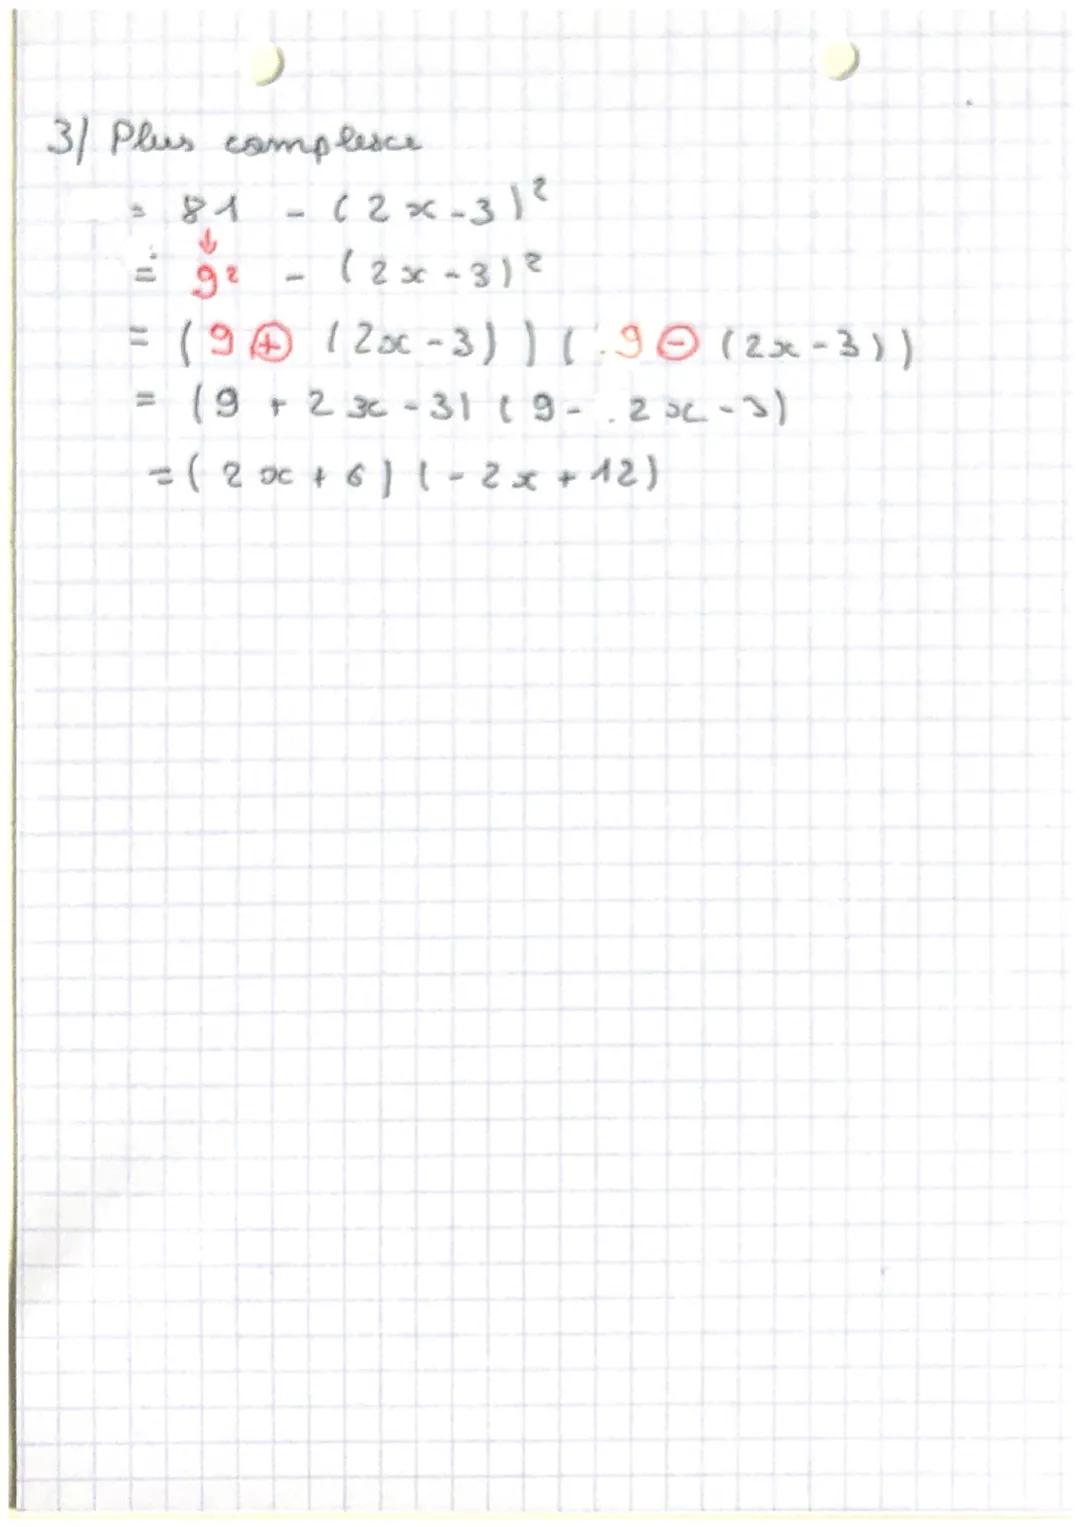 3/ Plus complexe
= 81 - (2x-3)²
↓
= 9² - (2x-3)²
= (9 ⊕ (2x-3)) (9 ⊖ (2x-3))
= (9 + 2x - 3) (9 - 2x - 3)
= (2x + 6) (-2x + 12)